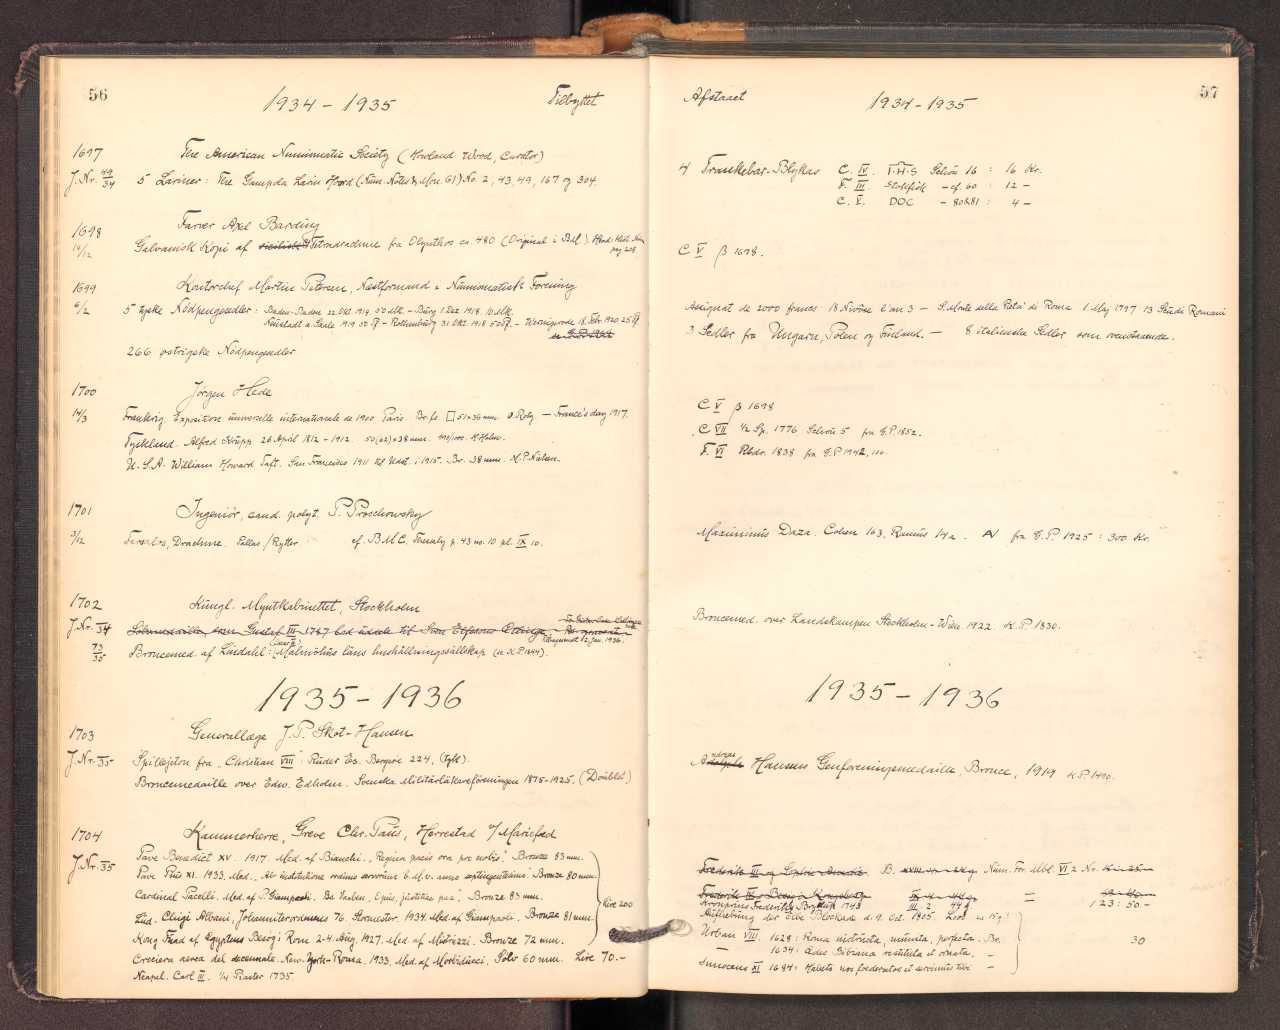 56
1934 - 1935
Tilbyttet
1697
The American Numismatic Society (Howland Wood, Curator)
J.Nr. 49/34
5 Lariner: The Gampola Larin Hoard (Num. Notes & Mon. 61) No. 2, 43, 49, 167 og 304.
1698
Farver Axel Barding
12/12
Galvanisk Kopi af Tetradrachme fra Olynthos ca. 480 (Original i Bdl.)
pag 208
1699
Kontorchef Martin Petersen, Næstformand i Numismatisk Forening
6/2
5 tyske Nödpengesedler: Baden-Baden 22 Okt. 1918 50 Mk. - Burg 1 Dez 1918 10 Mk.
Neustadt a Haale 1919 50 - Rothenburg 31 Okt. 1918 50 - Wernigerode 18 Febr 1920 25
266 østrigske Nödpengesedler
1700
Jørgen Hede
14/3
Frankrig. Exposition universelle internationale de 1900 Paris Br. fs. 51×36 mm. Roty - France's day 1917.
Tyskland. Alfred Krupp 26 April 1812 - 1912 50(62)×38 mm.
U.S.A. William Howard Taft. San Francisco 1911 til Udst. i 1915. Br. 38 mm. K.P. Nielsen.
1701
Ingeniör, cand. polyt. P. Proschowsky
3/12
Farsalos, Drachme. Pallas/Rytter cf. BMC. Thessaly p. 43 no. 10 pl. IX 10.
1702
Kungl. Myntkabinettet, Stockholm
J.Nr. 34
Sölvmedaille, som Gustaf III 1787
12 Jan. 1936.
73/35
Broncemed. af Lindahl: Malmöhus läns hushållningssällskap (se K.P. 1844).
1935 - 1936
1703
Generallæge J.P. Skot-Hansen
J.Nr. 35
Spillejeton fra "Christian VIII" Ruder Es. Bergsöe 224. (tykt).
Broncemedaille over Edw. Edholm. Svenska Militärläkareföreningen 1875-1925. (Doublet)
1704
Kammerherre, Greve Chr. Paus, Herrestad v/ Mariefred
J.Nr. 35
Pave Benedict XV. 1917. Med. af Bianchi. "Regina pacis ora pro nobis". Bronze 83 mm.
Pave Pius XI. 1933. Med. "Ab institutione ordinis servorum b. M.v. anno septingentesimo. Bronze 80 mm.
Cardinal Pacelli. Med. af P. Giampaoli. "Opus justitiae pax". Bronze 83 mm.
Lire 200
Lud. Chigi Albani, Johanniterordenens 76. Stormester. 1934. Med. af Giampaoli. Bronze 81 mm.
Kong Fuad af Egyptens Besög i Rom 2-4 Aug. 1927. Med. af Mistruzzi. Bronze 72 mm.
Crociera aerea del decennale. New York-Roma. 1933. Med. af Morbiducci. Sölv 60 mm. Lire 70.-
Neapel. Carl III. 1/4 Piaster 1735.
57
Afstaaet
1934 - 1935
4 Trankebar-Blykas C. IV. T.H.S Schou 16 : 16 Kr.
F. III. Stokfisk - cf. 60 : 12 -
C. V. DOC - 80&81 : 4 -
C V β 1698.
Assignat de 2000 francs 18 Nivôse l'an 3 - S. Monte della Pietà di Roma 1 Maj 1797 13 Scudi Romani
3 Sedler fra Ungarn, Polen og Finland. - 8 italienske Sedler som ovenstaaende.
C V β 1698
C VII 1/2 Sp. 1776 Schou 5 fra G.P. 1852.
F. VI Rbdr. 1838 fra G.P. 1942, 110.
Maximinus Daza. Cohen 163, Ramus 14a. AV fra G.P. 1925 : 300 Kr.
Broncemed. over Landskampen Stockholm-Wien 1922 K.P. 1830.
1935 - 1936
Andreas Hansens Genforeningsmedaille, Bronce, 1919 K.P. 1490.
Frederik III og Sophie Amalie B. Num. For. Mbl. VI 2 No.
Kronprins Frederiks Bryllup 1743 III. 2. 448. = 123 : 50 -
Aufhebung der Elbe Blockade d. 9. Oct. 1805.
Urban VIII. 1628: Roma instructa, munita, perfecta. Br. 30
- 1634: Ædes Bibiana restituta et ornata. -
Innocens XI 1684: -